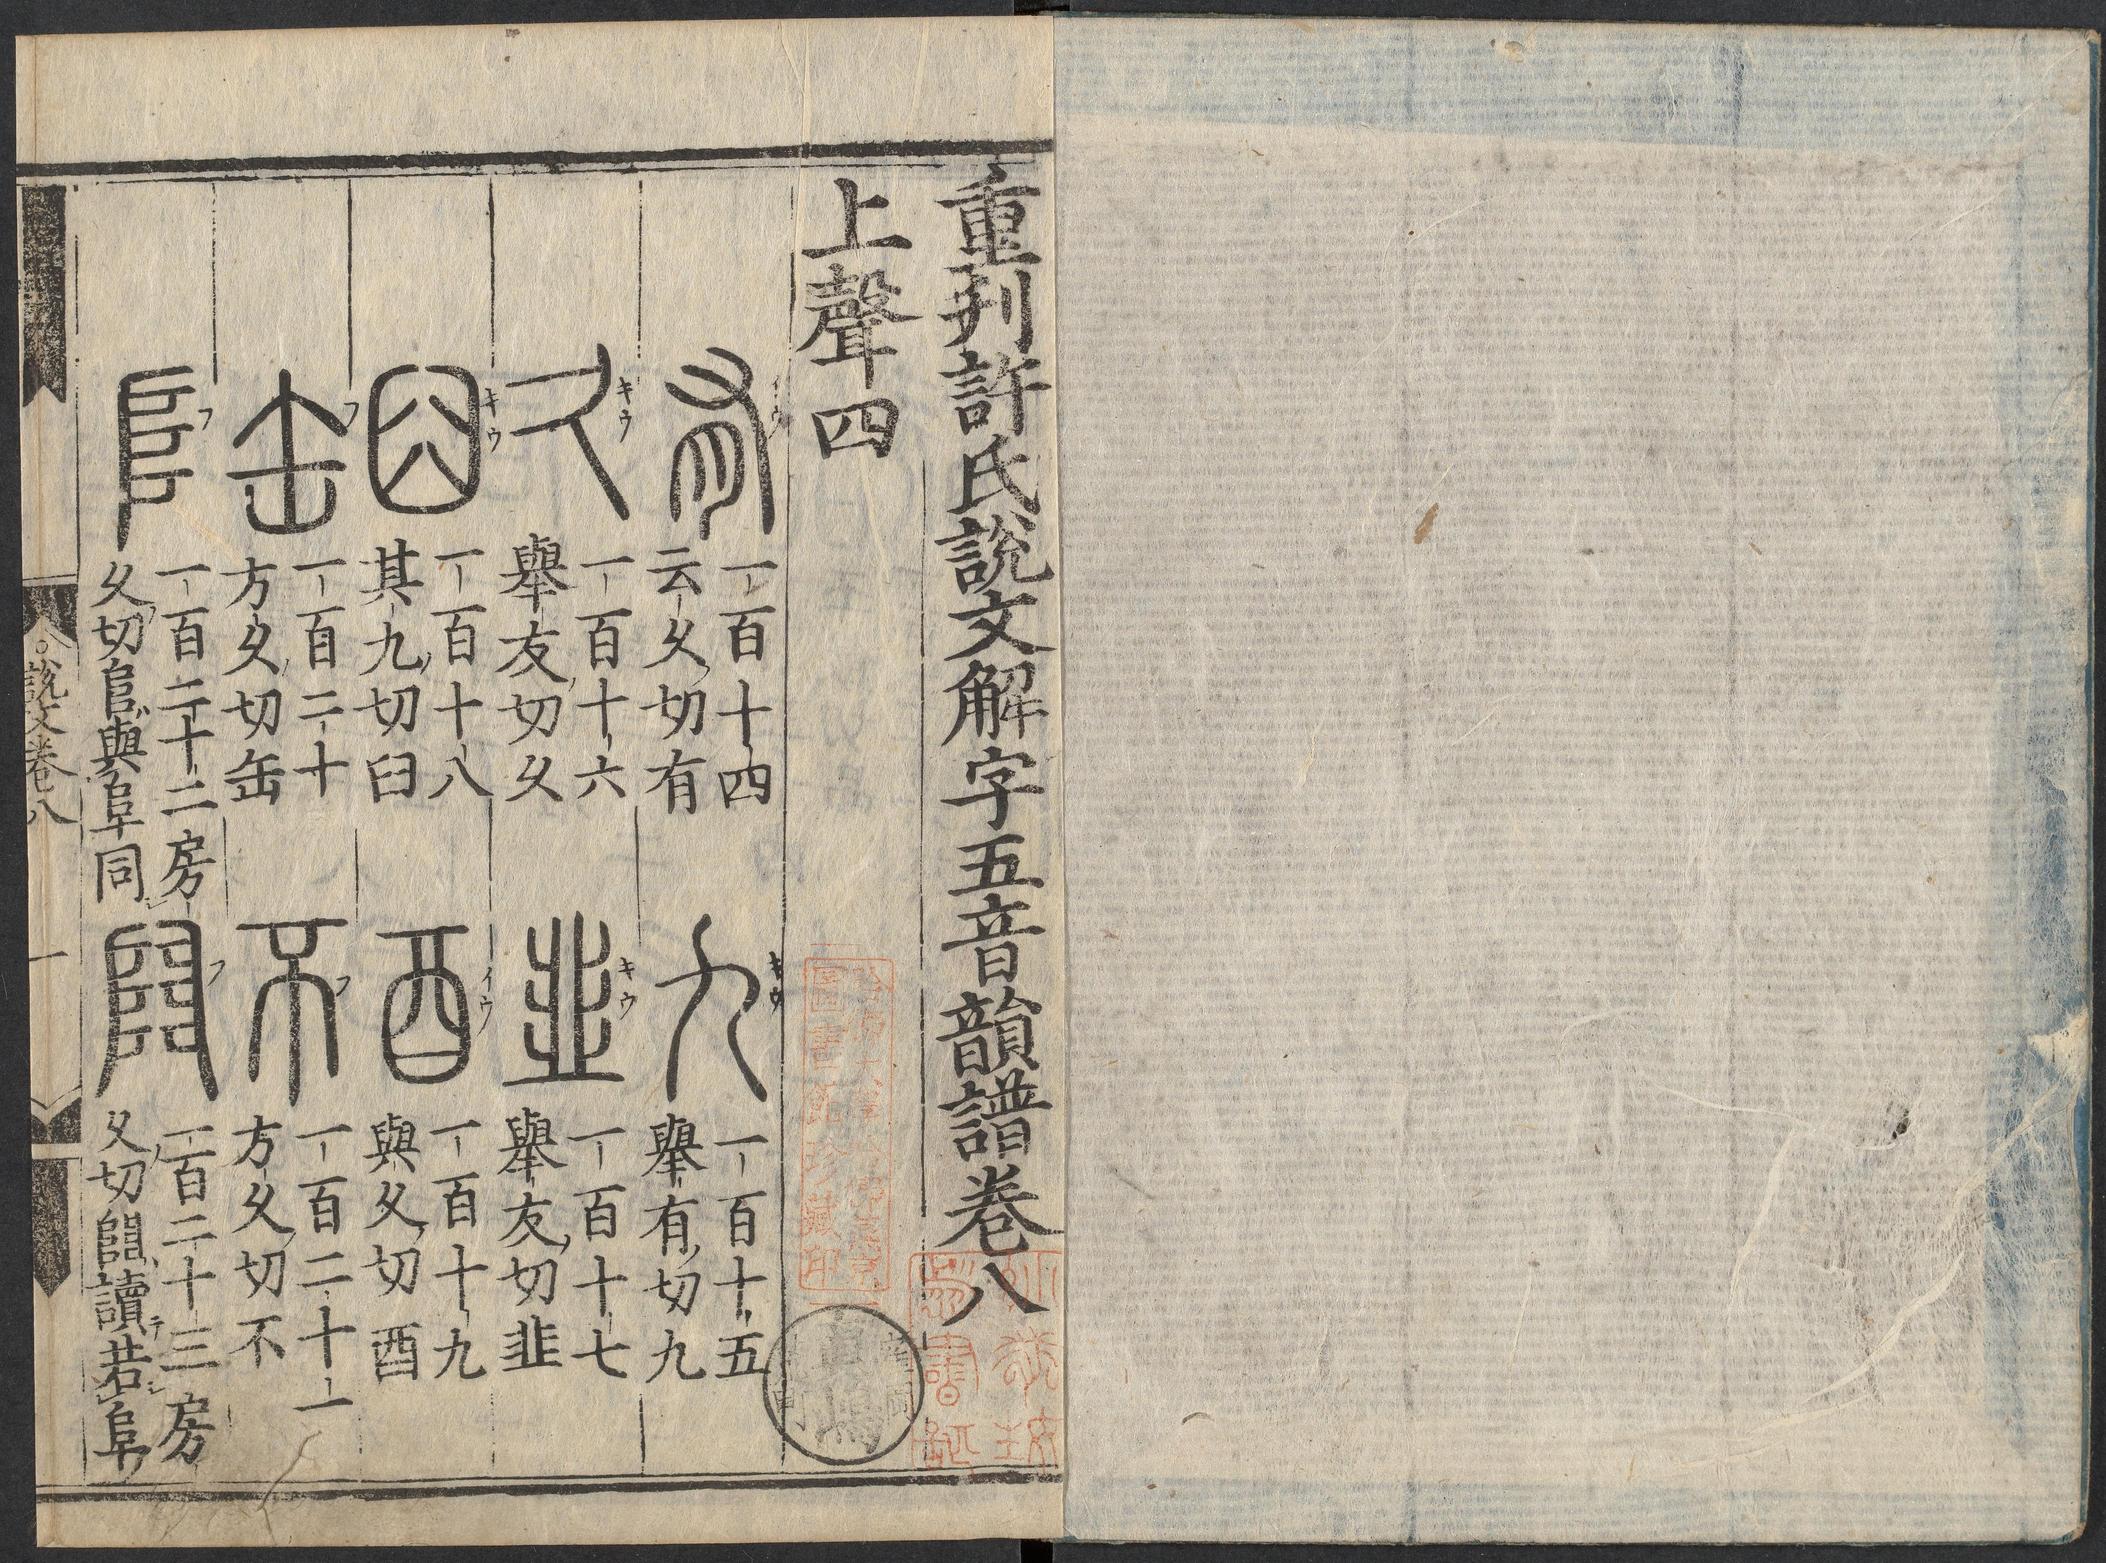 重刋許氏說文解字五音韻譜卷八
上聲四
イウ
一百十四
云久切有
キウ
一百十五
舉有切九
キウ
一百十六
舉友切久
キウ
一百十七
舉友切韭
キウ
一百十八
其九切臼
イウ
一百十九
與久切酉
フ
一百二十
方久切缶
フ
一百二十一
方久切不
フ
一百二十二房
久切𨸏與阜同
フ
一百二十三房
久切𨺅讀若阜
說文卷八
一